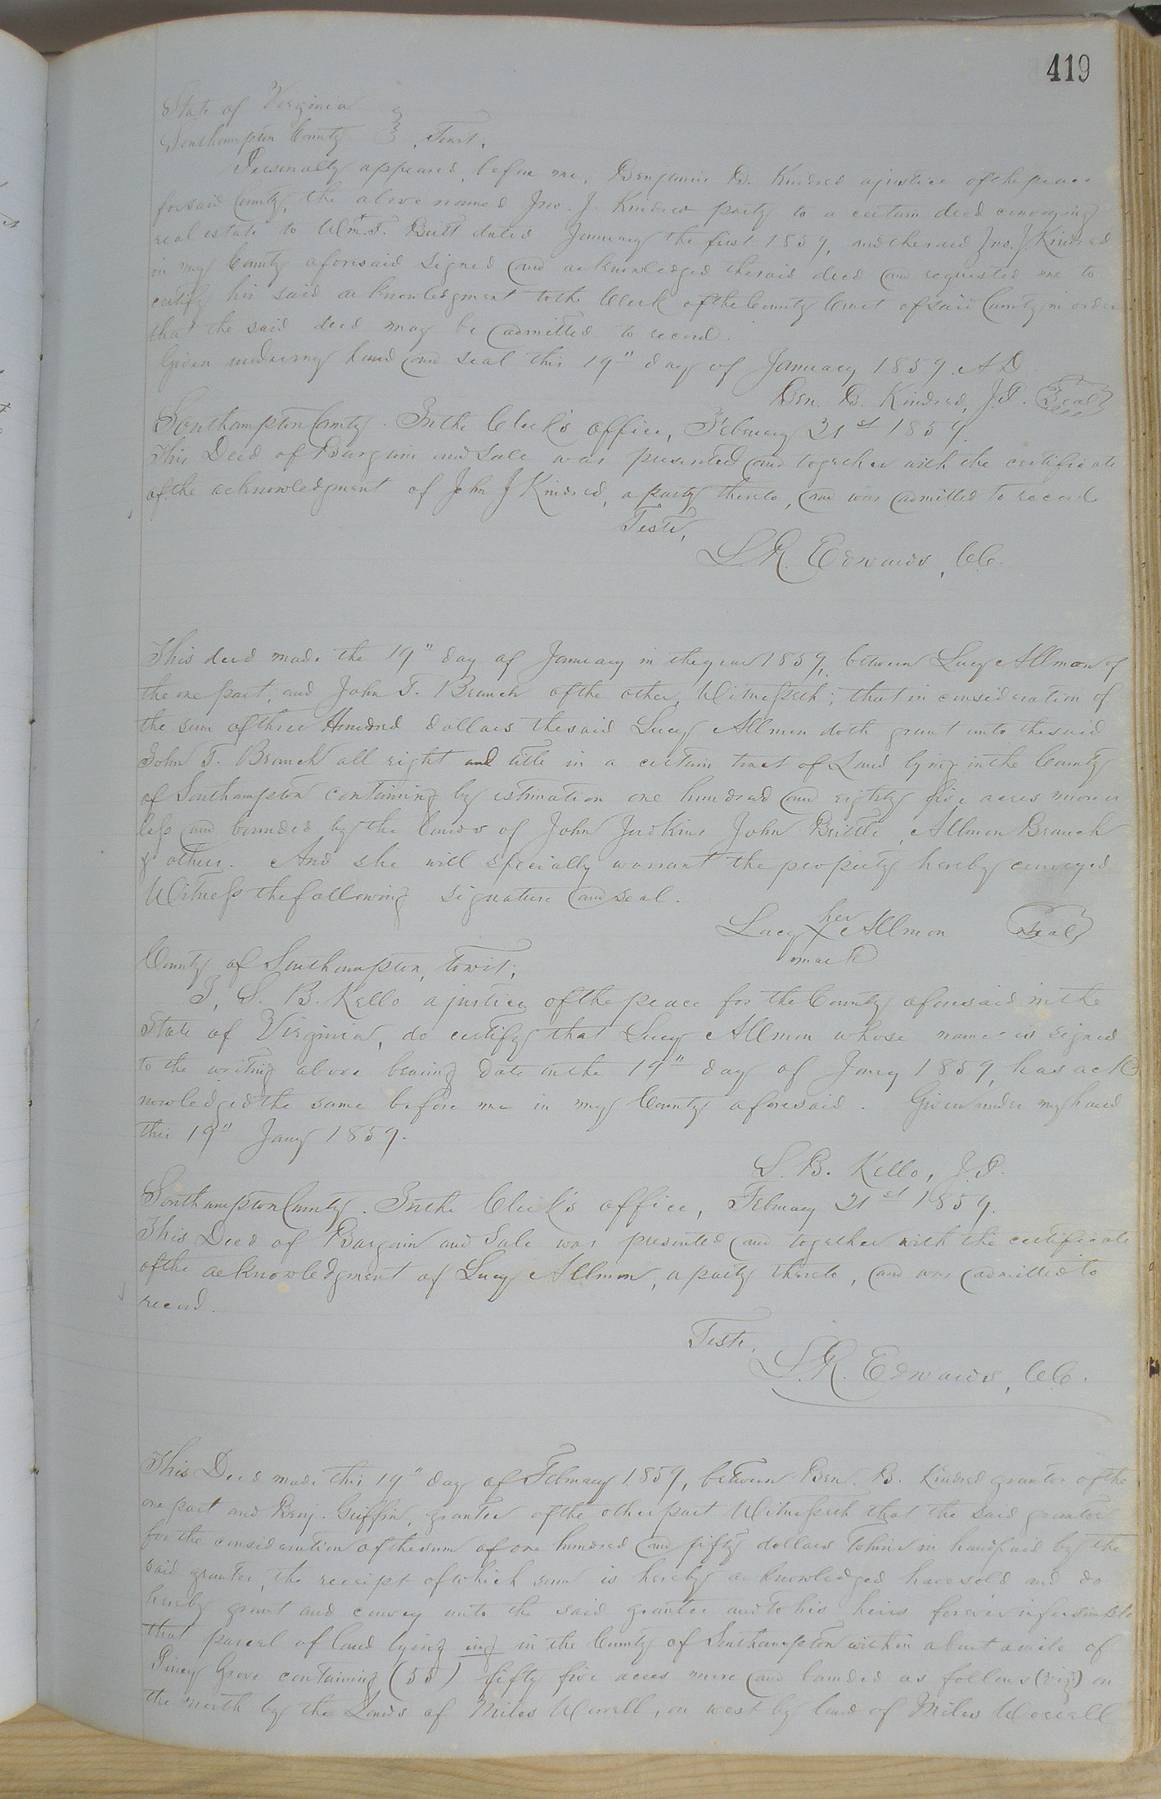 419
State of Virginia
Southampton County } Towit,
Personally appeared before me, Benjamin B. Kindred a justice of the peace
forsaid County, the above named Jno. J. Kindred party to a certain deed conveying
real estate to Wm. T. Butt dated January the first 1859, and the said Jno. J. Kindred
in my County aforesaid signed and acknowledged the said deed and requested me to
certify his said acknowledgment to the Clerk of the County Court of said County in order
that the said deed may be admitted to record.
Given under my hand and seal this 19" day of January 1859. A.D.
Ben. B. Kindred, J.P. Seal
Southampton County. In the Clerk's office, February 21st 1859.
This Deed of Bargain and Sale was presented and together with the certificate
of the acknowledgment of John J Kindred, a party thereto, and was admitted to record
Teste,
L.R. Edwards, C.C.
This deed made the 19" day of January in the year 1859, between Lucy Allmon of
the one part, and John T. Branch of the other, Witnesseth; that in consideration of
the sum of three Hundred dollars the said Lucy Allmon doth grant unto the said
John T. Branch all right and title in a certain tract of Land lying in the County
of Southampton containing by estimation one hundred and eighty five acres more or
less and bounded by the lands of John Judkins John Brittle, Allmon Branch
& others. And she will specially warrant the property hereby conveyed
Witness the following signature and seal.
Lucy her X mark Allmon Seal
County of Southampton, towit;
I, S. B. Kello a justice of the peace for the County aforesaid in the
State of Virginia, do certify that Lucy Allmon whose name is signed
to the writing above bearing date on the 19" day of Jany 1859, has ack
nowledged the same before me in my County aforesaid. Given under my hand
this 19" Jany 1859.
S. B. Kello, J.P.
Southampton County. In the Clerk's office, February 21st 1859.
This Deed of Bargain and Sale was presented and together with the certificate
of the acknowledgment of Lucy Allmon, a party thereto, and was admitted to
record.
Teste,
L.R. Edwards, C.C.
This Deed made this 19" day of February 1859, between Ben. B. Kindred grantor of the
one part and Benj. Griffin, grantee of the other part Witnesseth that the said grantor
for the consideration of the sum of one hundred and fifty dollars to him in hand paid by the
said grantee, the receipt of which sum is hereby acknowledged have sold and do
hereby grant and convey unto the said grantee and to his heirs forever in fee simple
that parcel of land lying ing in the County of Southampton within about a mile of
Piney Grove containing (55) fifty five acres more and bounded as follows (viz) on
the north by the Lands of Miles Worrell, on west by land of Miles Worrell